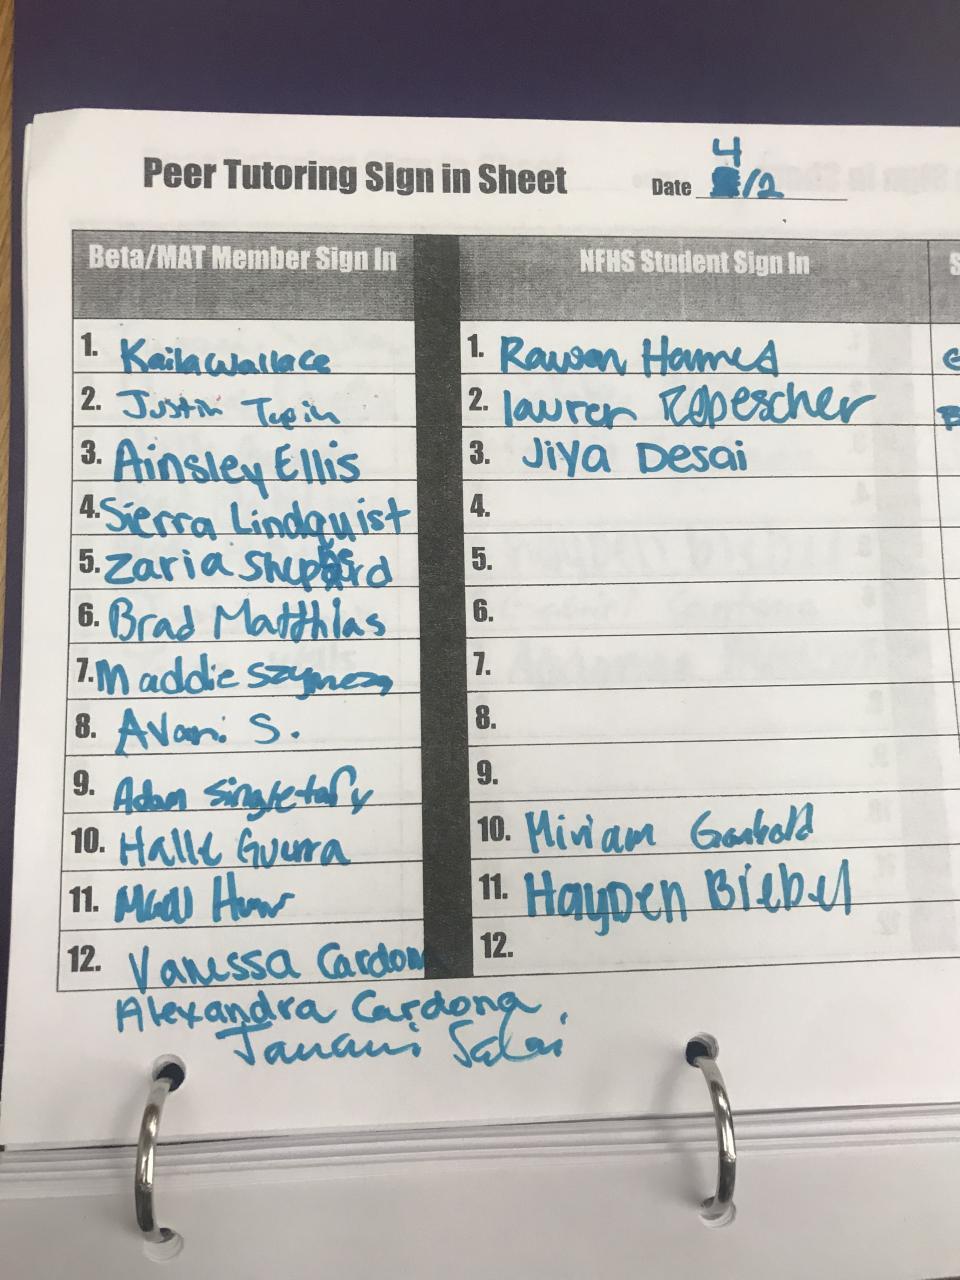 Peer Tutoring Sign in Sheet
Date 4/2
Beta/MAT Member Sign In
NFHS Student Sign In
1. Kaila Wallace
1. Rawan Hamed
2. Justin
2. lauren
3. Ainsley Ellis
3. Jiya Desai
4. Sierra Lindquist
4.
5. Zaria Shepherd
5.
6. Brad Matthias
6.
7. Maddie
7.
8. Avani S.
8.
9. Adam Singletary
9.
10. Halle Guerra
10. Miriam
11.
11. Hayden Biebel
12. Vanessa Cardona
12.
Alexandra Cardona
Janani Salai